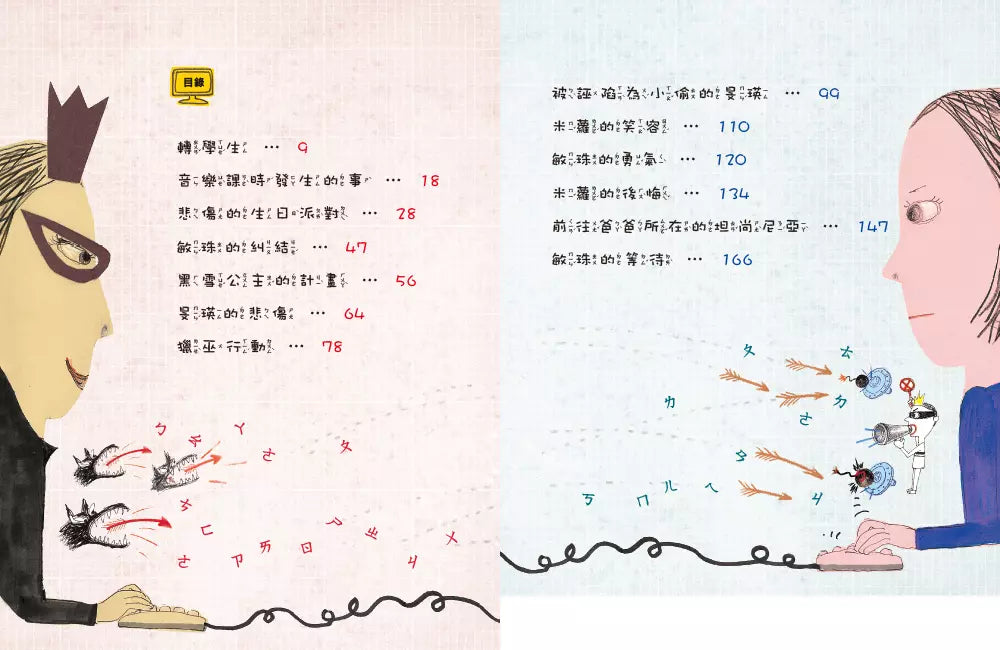 目錄
轉學生 … 9
音樂課時發生的事 … 18
悲傷的生日派對 … 28
敏珠的糾結 … 47
黑雪公主的計畫 … 56
旻瑛的悲傷 … 64
獵巫行動 … 78
被誣陷為小偷的旻瑛 … 99
米蘿的笑容 … 110
敏珠的勇氣 … 120
米蘿的後悔 … 134
前往爸爸所在的坦尚尼亞 … 147
敏珠的等待 … 166